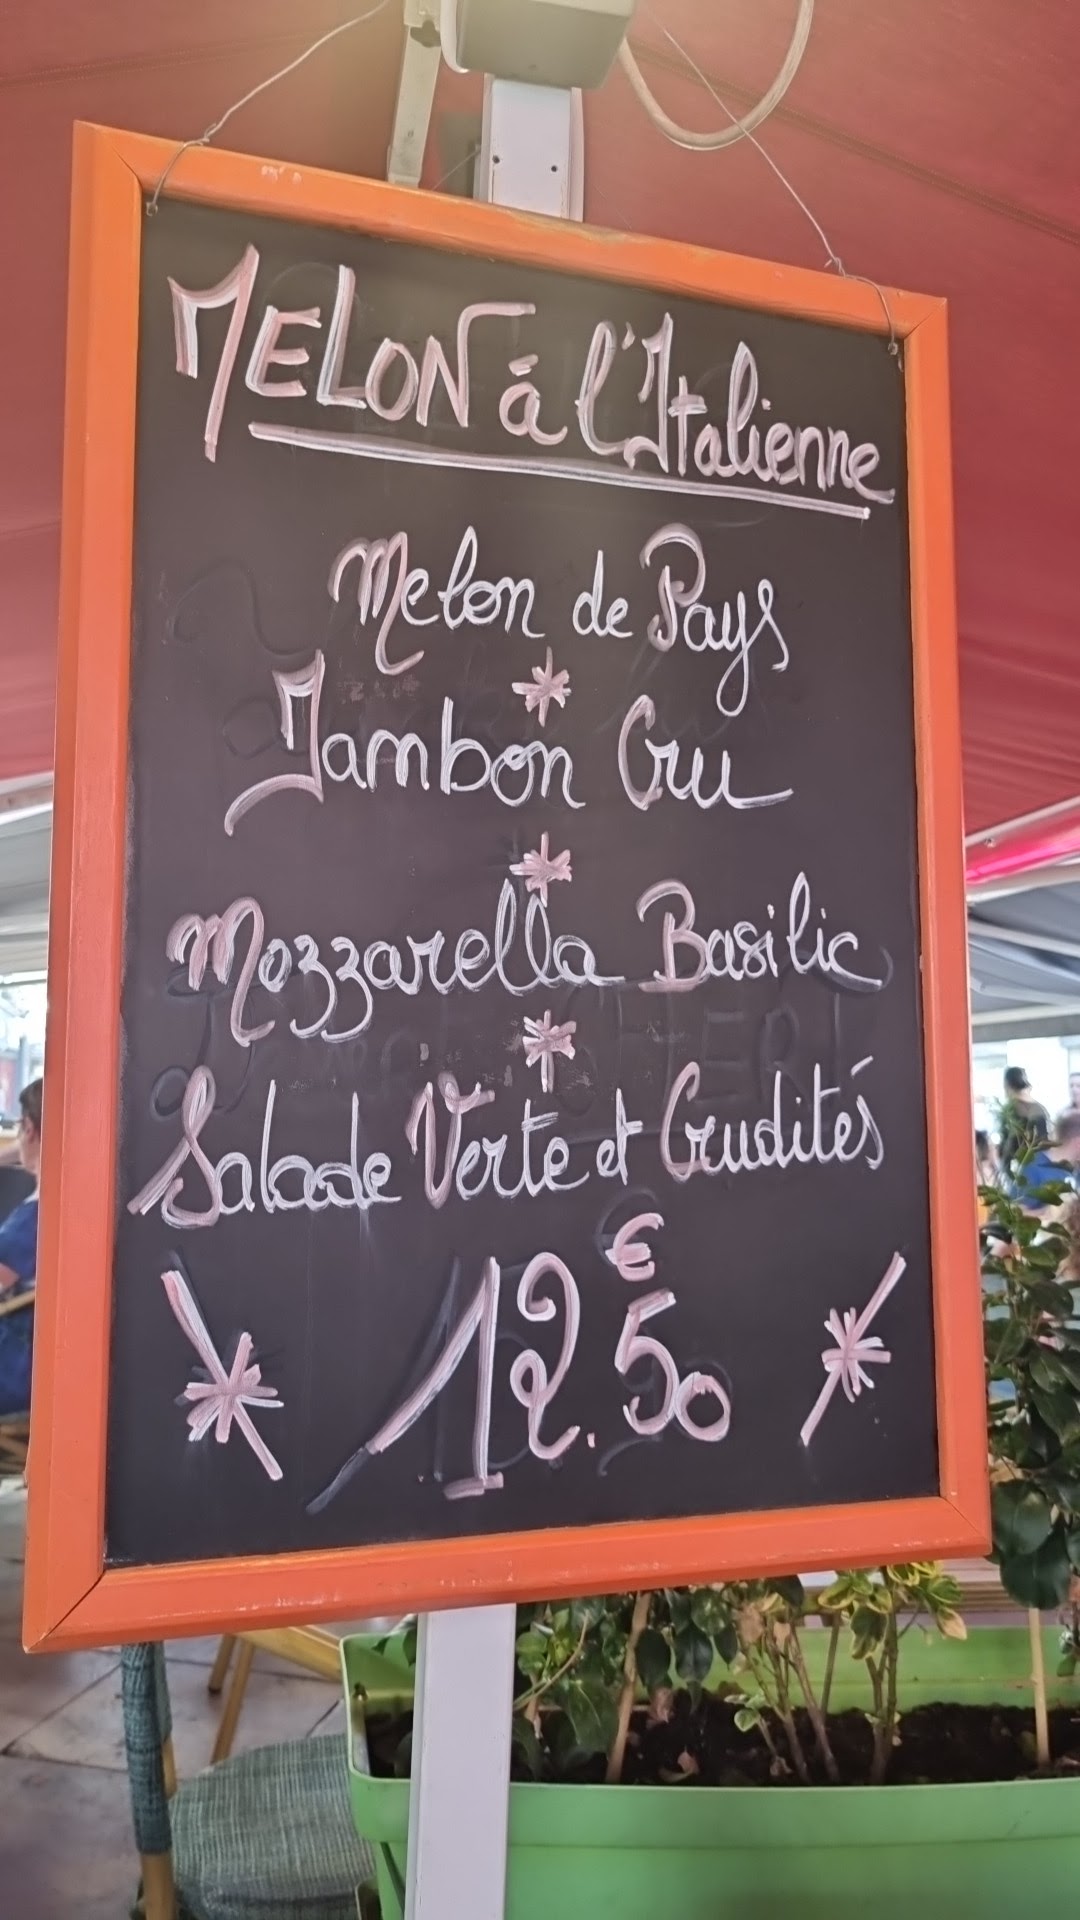 MELON á l'Italienne
Melon de Pays
*
Jambon Cru
*
Mozzarella Basilic
*
Salade Verte et Crudités
€
12.50